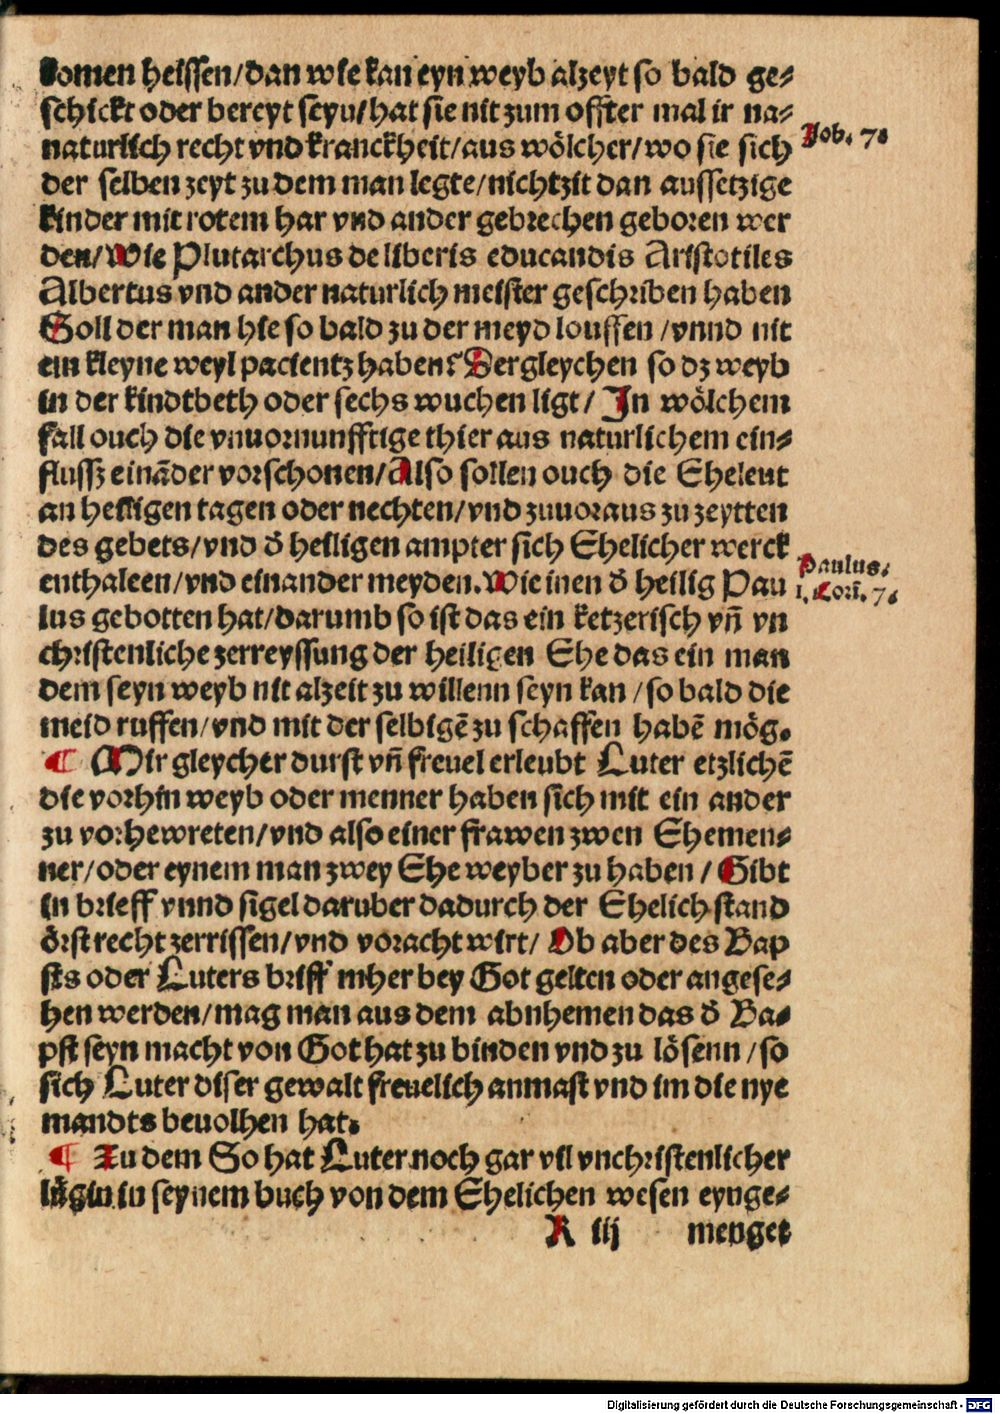 komen heissen/dan wie kan eyn weyb alzeyt so bald ge⸗
schickt oder bereyt seyn/hat sie nit zum offter mal ir na⸗
naturlich recht vnd kranckheit/aus wölcher/wo sie sich
Job. 7.
der selben zeyt zu dem man legte/nichtzit dan aussetzige
kinder mit rotem har vnd ander gebrechen geboren wer
den/Wie Plutarchus de liberis educandis Aristotiles
Albertus vnd ander naturlich meister geschriben haben
Soll der man hie so bald zu der meyd louffen /vnnd nit
ein kleyne weyl pacientz haben? Dergleychen so dz weyb
in der kindtbeth oder sechs wuchen ligt/ In wölchem
fall ouch die vnuornunfftige thier aus naturlichem ein⸗
flussz einãder vorschonen/Also sollen ouch die Eheleut
an heiligen tagen oder nechten/vnd zuuoraus zu zeytten
des gebets/vnd d̄ heiligen ampter sich Ehelicher werck
enthaleen/vnd einander meyden. Wie inen d̄ heilig Pau
Paulus.
1. Corī. 7.
lus gebotten hat/darumb so ist das ein ketzerisch vñ vn
christenliche zerreyssung der heiligen Ehe das ein man
dem seyn weyb nit alzeit zu willenn seyn kan /so bald die
meid ruffen/vnd mit der selbigẽ zu schaffen habẽ mög.
¶ Mir gleycher durst vñ freuel erleubt Luter etzlichẽ
die vorhin weyb oder menner haben sich mit ein ander
zu vorhewreten/vnd also einer frawen zwen Ehemen⸗
ner/oder eynem man zwey Ehe weyber zu haben / Gibt
in brieff vnnd sigel daruber dadurch der Ehelich stand
örst recht zerrissen/vnd voracht wirt/ Ob aber des Bap
sts oder Luters briff mher bey Got gelten oder angese⸗
hen werden/mag man aus dem abnhemen das d̄ Ba⸗
pst seyn macht von Got hat zu binden vnd zu lösenn /so
sich Luter diser gewalt freuelich anmast vnd im die nye
mandts beuolhen hat.
¶ Zu dem So hat Luter noch gar vil vnchristenlicher
lügin in seynem buch von dem Ehelichen wesen eynge⸗
K iij menget
Digitalisierung gefördert durch die Deutsche Forschungsgemeinschaft - DFG